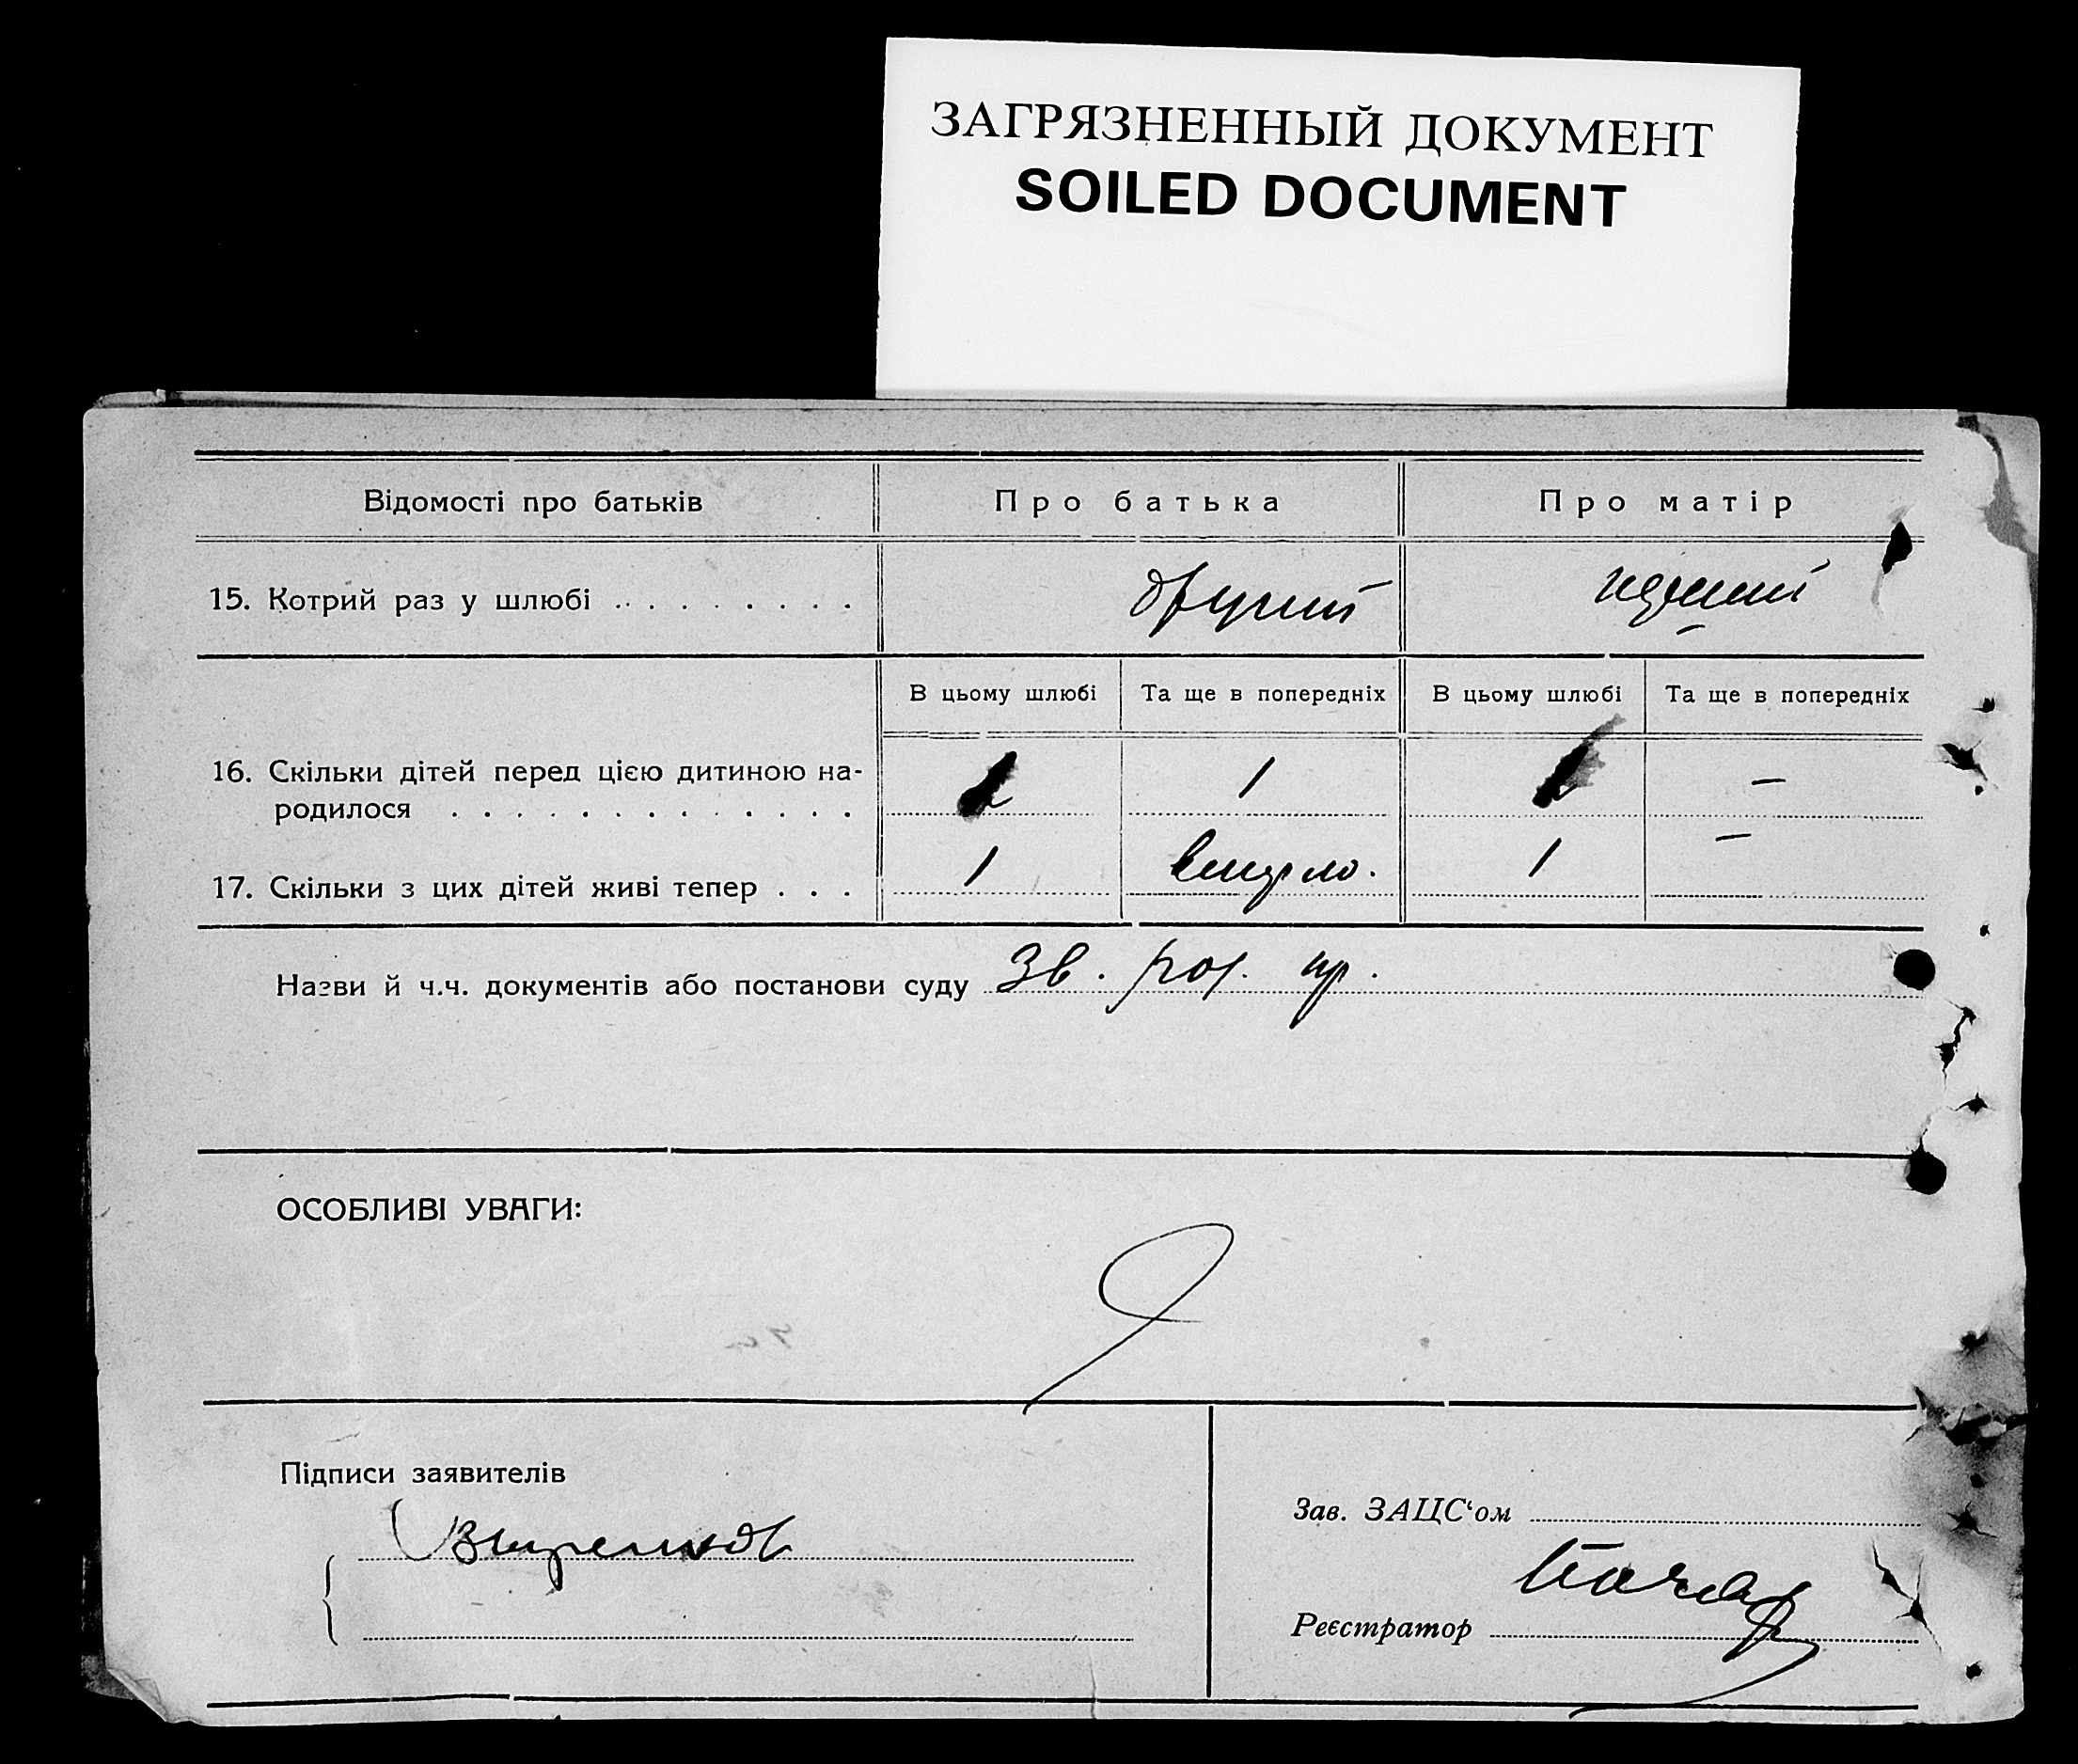 ЗАГРЯЗНЕННЫЙ ДОКУМЕНТ
SOILED DOCUMENT
Відомості про батьків
Про батька
Про матір
15. Котрий раз у шлюбі . . . . . . . . .
другий
В цьому шлюбі
Та ще в попередніх
В цьому шлюбі
Та ще в попередніх
16. Скільки дітей перед цією дитиною на-
родилося . . . . . . . . . . . . .
1
–
17. Скільки з цих дітей живі тепер . . .
1
вмерло.
1
–
Назви й ч.ч. документів або постанови суду
Зв. пол. пр.
ОСОБЛИВІ УВАГИ:
Підписи заявителів
Зав. ЗАЦС‘ом
Реєстратор